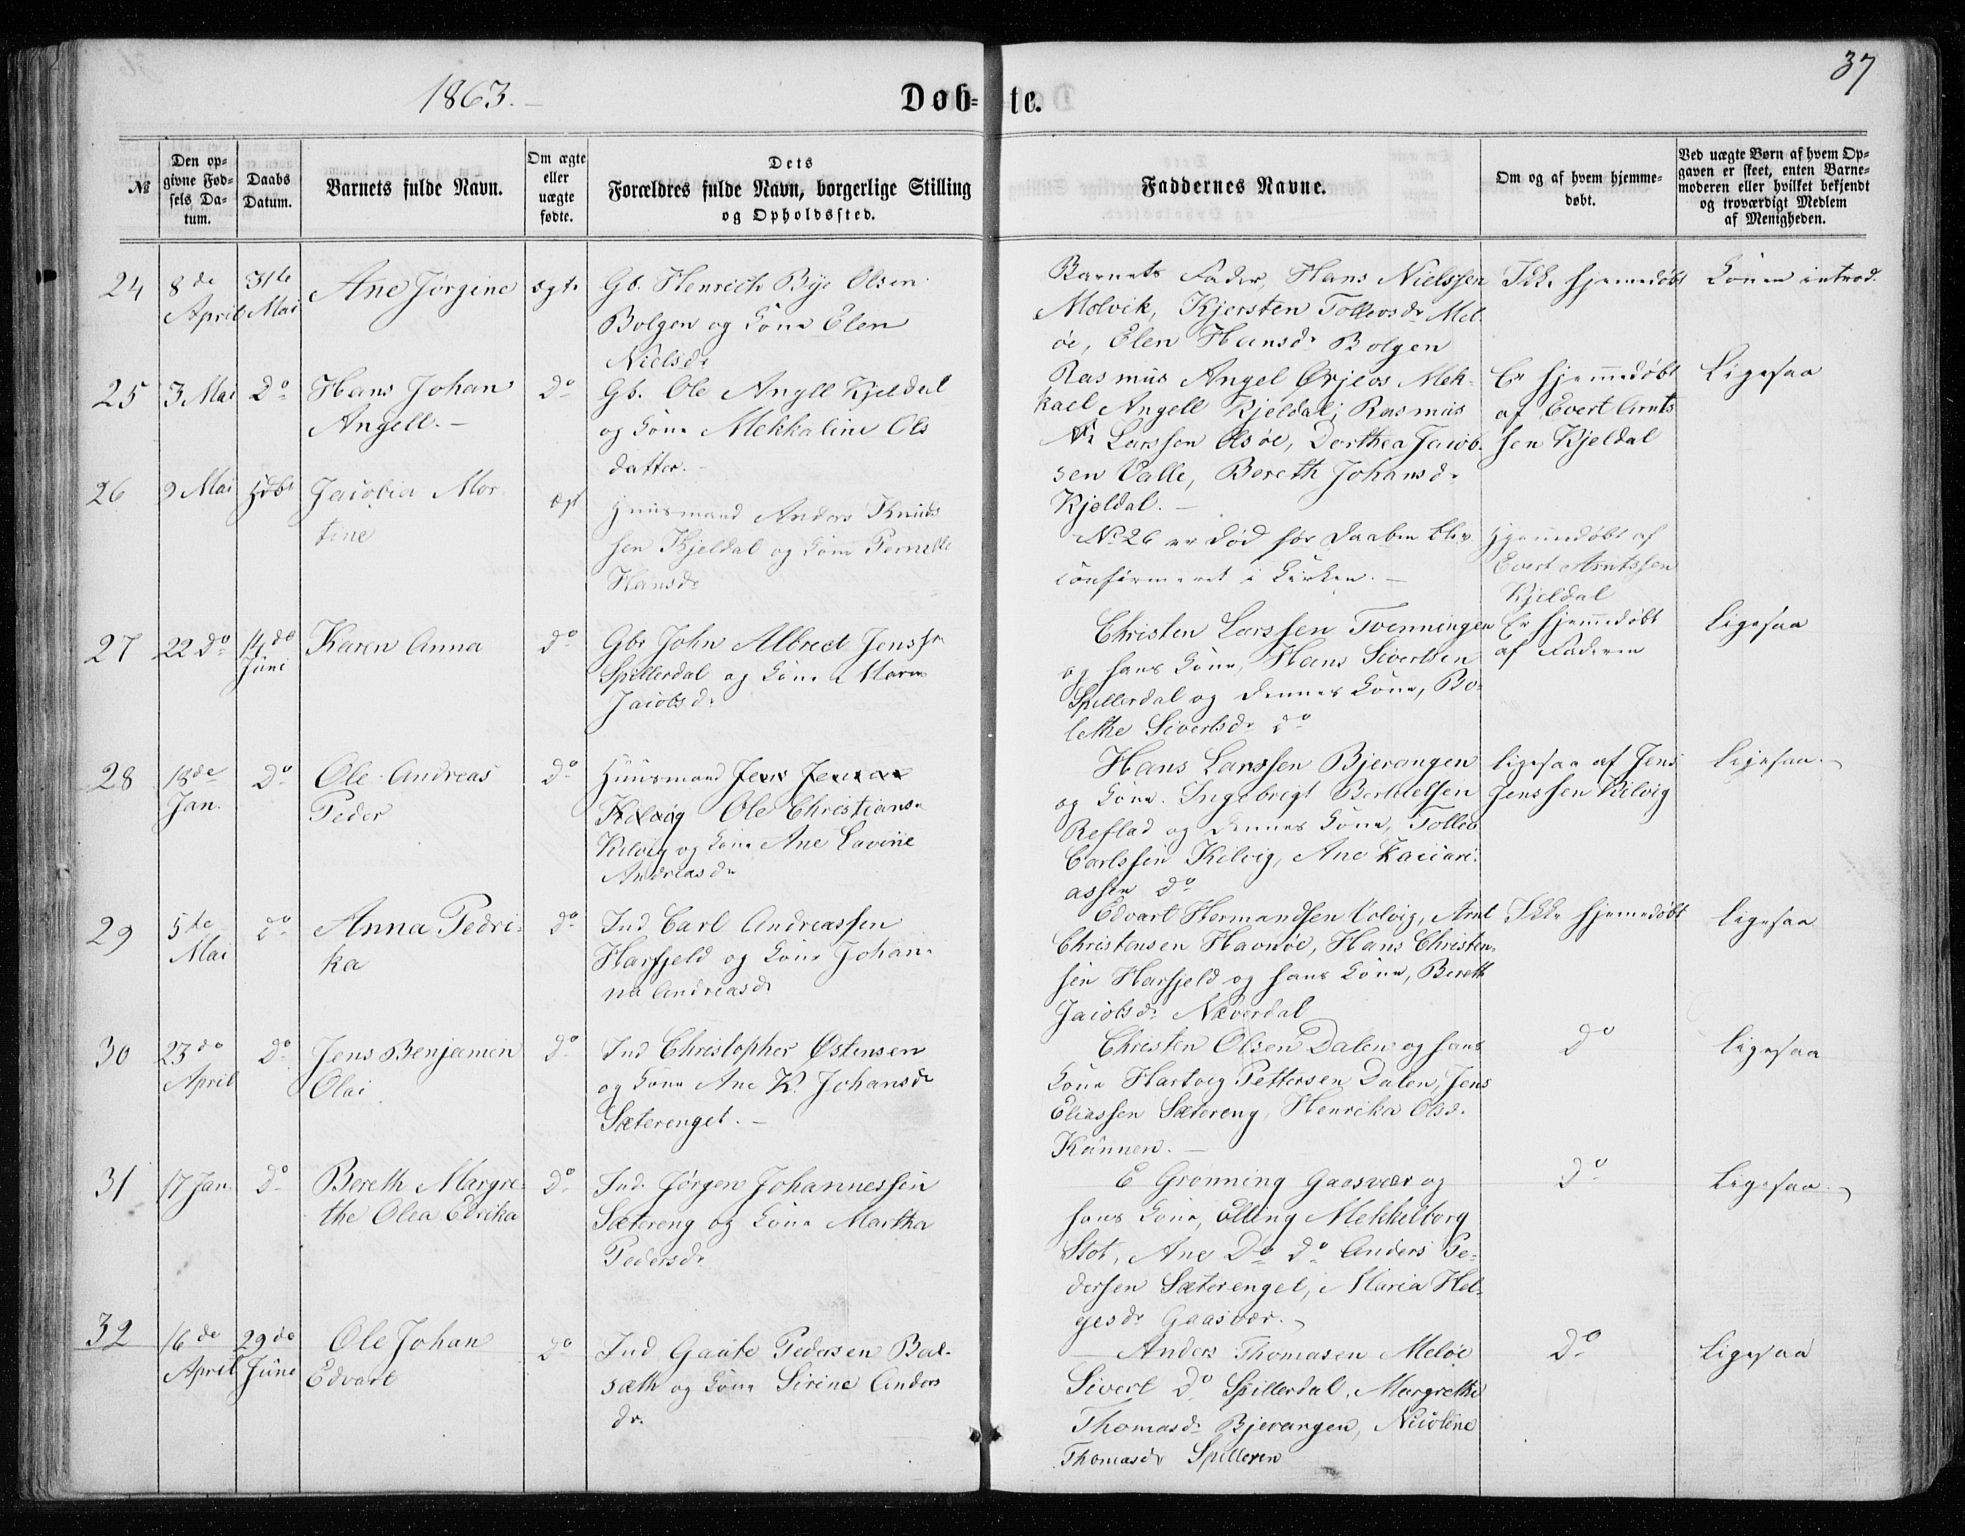 37
1863.
Døb-te.
№
Den op-
givne Fød-
sels Da-
tum.
Daabs
Datum.
Barnets fulde Navn.
Om ægte
eller
uægte
fødte.
Dets
Forældres fulde Navn, borgerlige Stilling
og Opholdssted.
Faddernes Navne.
Om og af hvem hjemme-
døbt.
Ved uægte Børn af hvem Op-
gaven er skeet, enten Barne-
moderen eller hvilket bekjendt
og troværdigt Medlem
af Menigheden.
24
8de
April
31te
Mai
Ane Jørgine
ægte
Gb. Henrich Bye Olsen
Bolgen og Kone Elen
Nielsdr
Barnets Fader, Hans Nielssen
Molvik, Kjersten Tollevsdr Mel-
øe, Elen Hansdr Bolgen
Ikke hjemmedøbt
Konen introd.
25
3 Mai
Do
Hans Johan
Angell.
Do
Gb. Ole Angell Kjeldal
og Kone Mekkaline Ols
datter.
Rasmus Angel Ørjevs Mek-
kael Angell Kjeldal, Rasmus
Larssen Olsøe, Dorthea Jacob-
sen Valle, Bereth Johansdr
Kjeldal.
Er hjemmedøbt
af Evert Arnts
sen Kjeldal
Ligesaa
26
9 Mai
Hdbt
Jacobia Mor
tine
ægt
Huusmand Anders Knuds
sen Kjeldal og Kone Pernille
Hansdr
No 26 er død før Daaben blev
confirmeret i Kirken.
Hjemmedøbt af
Evert Arntssen
Kjeldal
27
22 do
14de
Juni
Karen Anna
do
Gbr John Albrect Jenss
Spillerdal og Kone Maren
Jacobsdr
Christen Larssen Tvenningen
og hans Kone, Hans Sivertsen
Spillerdal og dennes Kone, Bo-
lethe Sivertsdr do
Er hjemmedøbt
af Faderen
Ligesaa
28
18de
Jan.
Do
Ole Andreas
Peder
Do
Huusmand Jens Jensen
Kilvig Ole Christians
Kilvig og Kone Ane Lavine
Andreasdr
Hans Larssen Bjerangen
og Kone. Ingebrigt Berthelsen
Reflad og dennes Kone, Tollev
Carlssen Kilvig, Ane Zacari-
assen do
Ligesaa af Jens
Jenssen Kilvig
Ligesaa.
29
5te
Mai
do
Anna Pedri-
ka
do
Ind Carl Andreassen
Harfjeld og Kone Johan-
na Andreasdr
Edvart Hermandsen Volvig, Arnt
Christensen Havnøe, Hans Christen-
sen Harfjeld og hans Kone, Bereth
Jacobsdr Næverdal
Ikke hjemmedøbt
Ligesaa
30
23de
April
do
Jens Benjamin
Olai
do
Ind Christopher Østensen
og Kone Ane K. Johansdr
Sæterenget.
Christen Olsen Dalen og hans
Kone Hartvig Pettersen Dalen, Jens
Eliassen Sætereng, Henrika Olsd.
Kunnen.
do
Ligesaa
31
17 Jan.
do
Bereth Margre-
the Olea Edrika
do
Ind. Jørgen Johannessen
Sætereng og Kone Martha
Pedersdr
E Grønning Gaasvær og
hans Kone, Elling Mekkelborg
Stot, Ane Do do Anders Pe-
dersen Sæterenget, Maria Hel-
gesdr Gaasvær.
do
Ligesaa.
32
16de
April
29de
Juni
Ole Johan
Edvart
do
Ind Gaute Pedersen Bal-
sæth og Kone Sirine Anders
dr.
Anders Thomasen Meløe
Sivert do Spillerdal, Margrethe
Thomasdr Bjerangen, Nicoline
Thomasdr Spilleren
do
Ligesaa